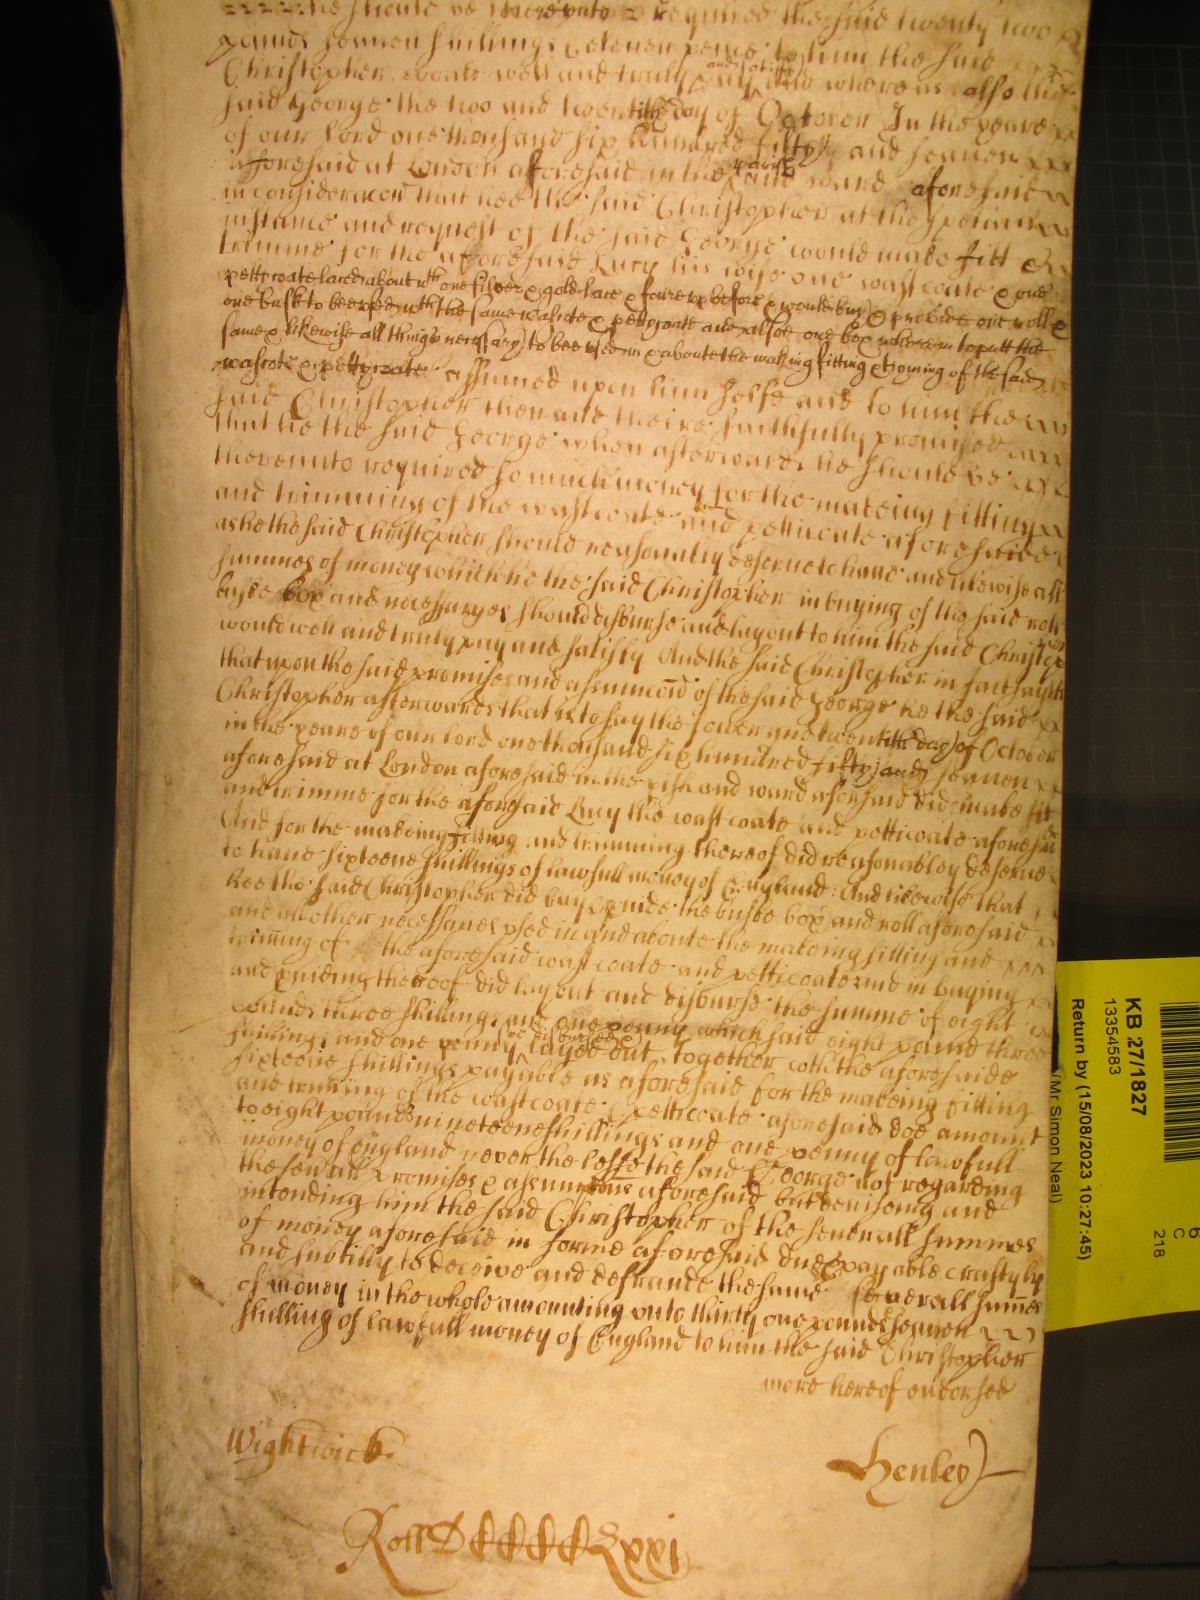 he should be thereunto required the said twenty two
pounds seaven shillings & eleaven pence to him the said
Christopher would well and truly pay and satisfy And whereas also the
said George the two and twentith day of October In the yeare
of our lord one thousand six hundred fifty and seaven
aforesaid at London aforesaid in the parish and ward aforesaid
in consideracon that hee the said Christopher at the speciall
instance and request of the said George would make fitt &
trimme for the aforesaid Lucy his wife one wastcoate & one
petticoate laced about wth one silver & gold lace & foure up before & would buy & provide one roll &
one busk to bee used wth the same wascote & petticoate and alsoe one box wherein to putt the
same & likewise all things necessary to bee used in & aboute the making fitting & triming of the said
wascote & petticoate assumed upon him selfe and to him the
said Christopher then and there faithfully promised
that he the said George when afterwards he should be
thereunto required so much money for the makeing fitting
and trimming of the wastcoate and petticoate aforesaid
as he the said Christopher should reasonably deserve to have and likewise all
summes of money which he the said Christopher in buying of the said roll
buske box and necessaryes should disburse and lay out to him the said Christopher
would well and truly pay and satisfy And the said Christopher in fact sayth
that upon the said promises and assumcod of the said George he the said
Christopher afterwards that is to say the fower and twentith day of October
in the yeare of our lord one thousand six hundred fifty and seaven
aforesaid at London aforesaid in the pish and ward aforesaid did make fit
and trimme for the aforesaid Lucy the wastcoate and petticoate aforesaid
And for the makeing fitting and trimming thereof did reasonabley deserve
to have sixteene shillings of lawfull money of England: And likewise that
hee the said Christopher did buy & pvide the buske box and roll aforesaid
and all other necessaries used in and aboute the makeing fitting and
triming of the aforesaid wastcoate and petticoate and in buying
and pviding thereof did lay out and disburse the summe of eight
pounds three shillings and one penny which said eight pound three
shillings and one penny soe disbursed & layed out together with the aforesaide
sixteene shillings payable as aforesaid for the makeing fitting
and triming of the wastcoate & petticoate aforesaid doe amount
to eight pounds nineteene shillings and one penny of lawfull
money of England never the lesse the said George not regarding
the sevall promises & assumcons aforesaid but devising and
intending him the said Christopher of the severall summes
of money aforesaid in forme aforesaid due & payable craftyly
and subtilly to deceive and defraude the same severall sumes
of money in the whole amounting unto thirty one pounds seaven
shilling of lawfull money of England to him the said Christopher
more hereof endorsed
Wightwick.
Henley
Roll D CCCC Lxxi
KB 27/1827
13354583
Return by (15/08/2023 10:27:45)
(Mr Simon Neal)
6
C
218